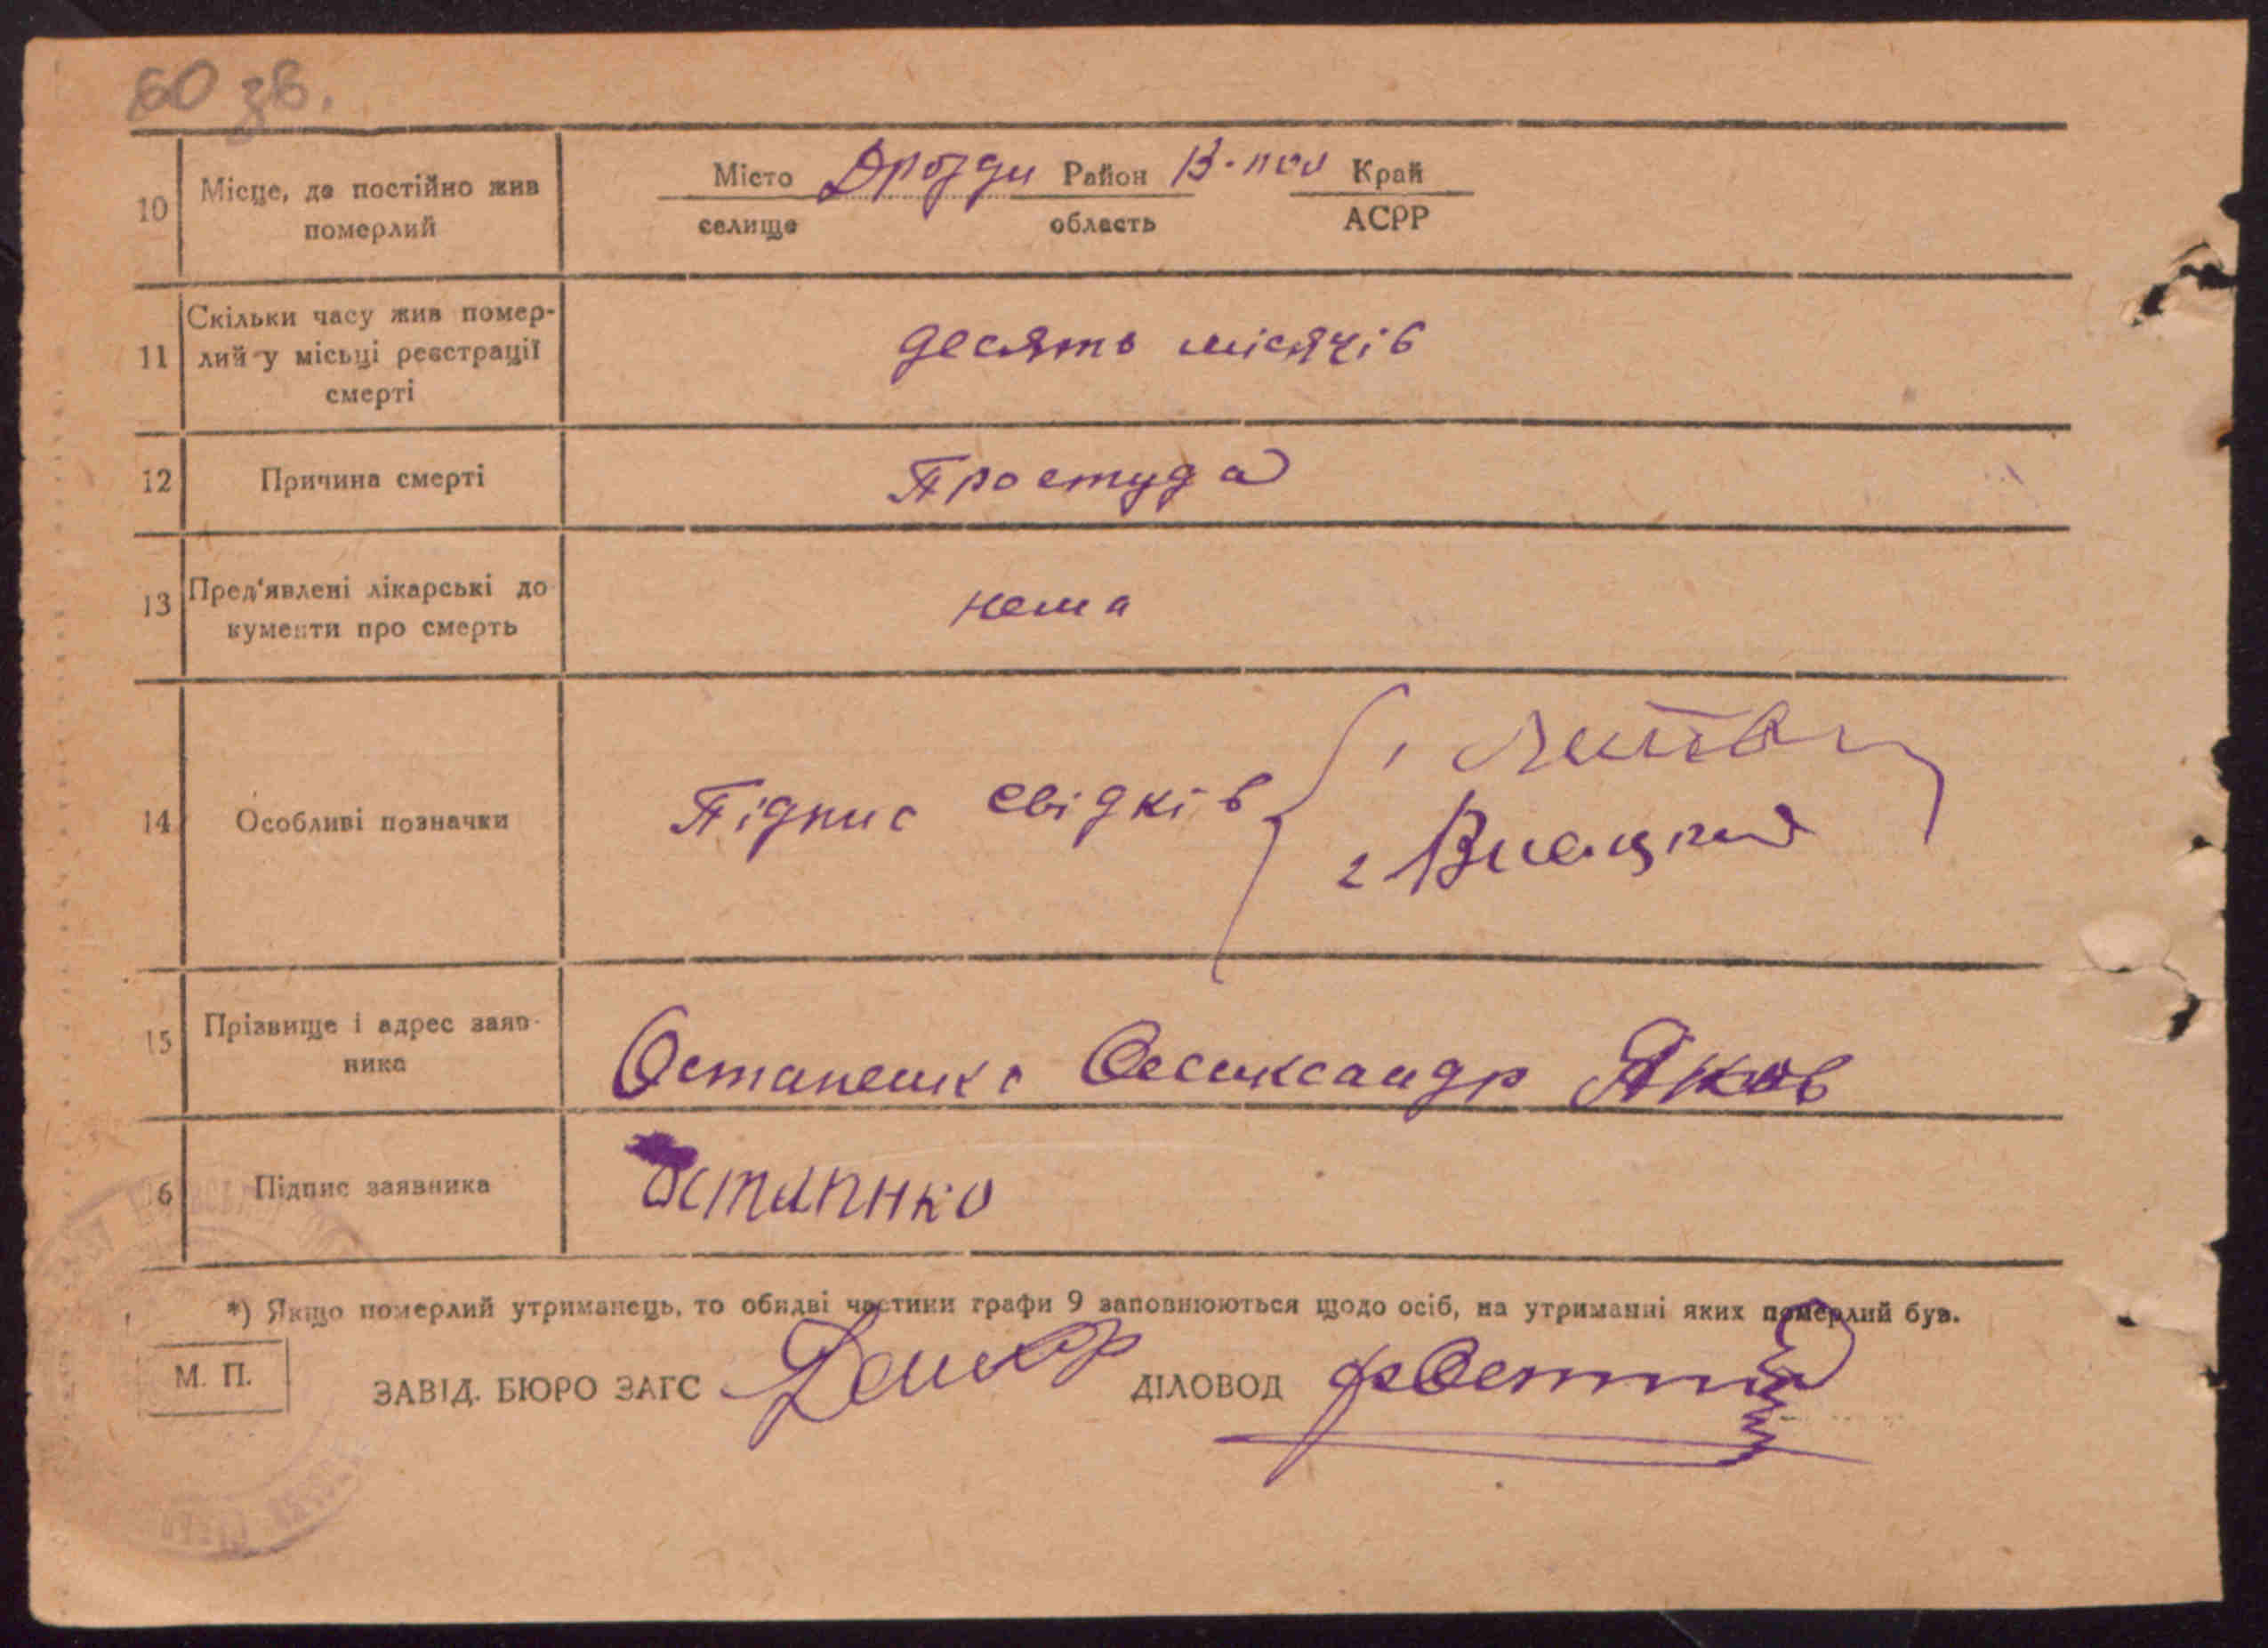 60 зв.
10 Місце, де постійно жив померлий
Місто Дрозди Район Край
селище область АСРР
11 Скільки часу жив помер-
лий у місьці реєстрації
смерті
десять місяців
12 Причина смерті Простуда
13 Пред'явлені лікарські до
кументи про смерть
нема
14 Особливі позначки Підпис свідків
1
2
15 Прізвище і адрес заяв-
ника
Остапенко Олександр Яков
16 Підпис заявника Остапнко
*) Якщо померлий утриманець, то обидві частини графи 9 заповнюються щодо осіб, на утриманні яких померлий був.
М. П. ЗАВІД. БЮРО ЗАГС ДІЛОВОД